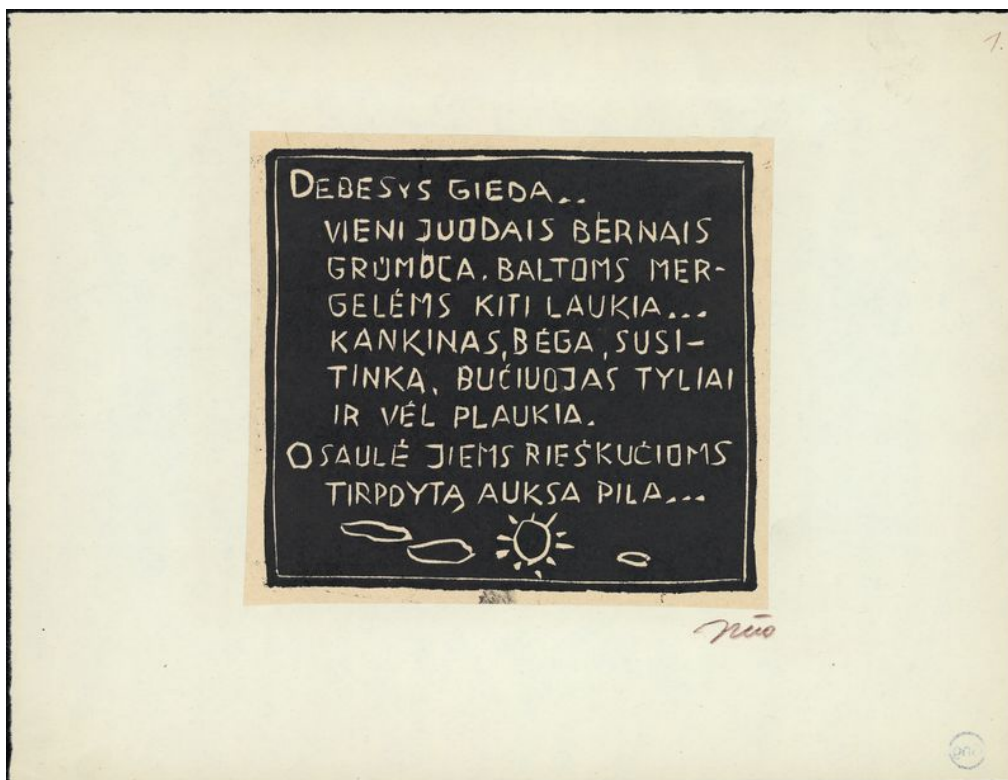 1.
DEBESYS GIEDA..
VIENI JUODAIS BERNAIS
GRŪMOCA. BALTOMS MER-
GELĖMS KITI LAUKIA...
KANKINAS, BĖGA, SUSI-
TINKA, BUČIUOJAS TYLIAI
IR VĖL PLAUKIA.
O SAULĖ JIEMS RIEŠKUČIOMS
TIRPDYTĄ AUKSA PILA...